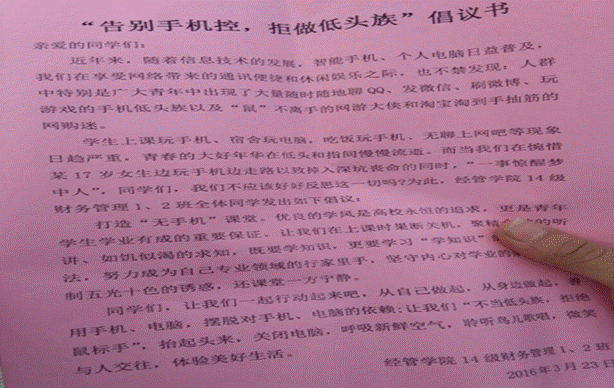 “告别手机控，拒做低头族”倡议书
亲爱的同学们：
近年来，随着信息技术的发展，智能手机、个人电脑日益普及，
我们在享受网络带来的通讯便捷和休闲娱乐之际，也不禁发现：人群
中特别是广大青年中出现了大量随时随地聊QQ、发微信、刷微博、玩
游戏的手机低头族以及“鼠”不离手的网游大侠和淘宝淘到手抽筋的
网购迷。
学生上课玩手机、宿舍玩电脑，吃饭玩手机、无聊上网吧等现象
日趋严重，青春的大好年华在低头和指间慢慢流逝。而当我们在惋惜
某17岁女生边玩手机边走路以致掉入深坑丧命的同时，“一事惊醒梦
中人”，同学们，我们不应该好好反思这一切吗?为此，经管学院14级
财务管理1、2班全体同学发出如下倡议：
打造“无手机”课堂。优良的学风是高校永恒的追求，更是青年
学生学业有成的重要保证。让我们在上课时果断关机，聚精 的听
讲、如饥似渴的求知，既要学知识，更要学习“学知识”
法，努力成为自己专业领域的行家里手，坚守内心对学业的
制五光十色的诱惑，还课堂一方宁静。
同学们，让我们一起行动起来吧，从自己做起，从身边做起，善
用手机、电脑，摆脱对手机、电脑的依赖;让我们“不当低头族，拒绝
鼠标手”，抬起头来，关闭电脑，呼吸新鲜空气，聆听鸟儿歌唱，微笑
与人交往，体验美好生活。
经管学院14级财务管理1、2班
2016年3月23日